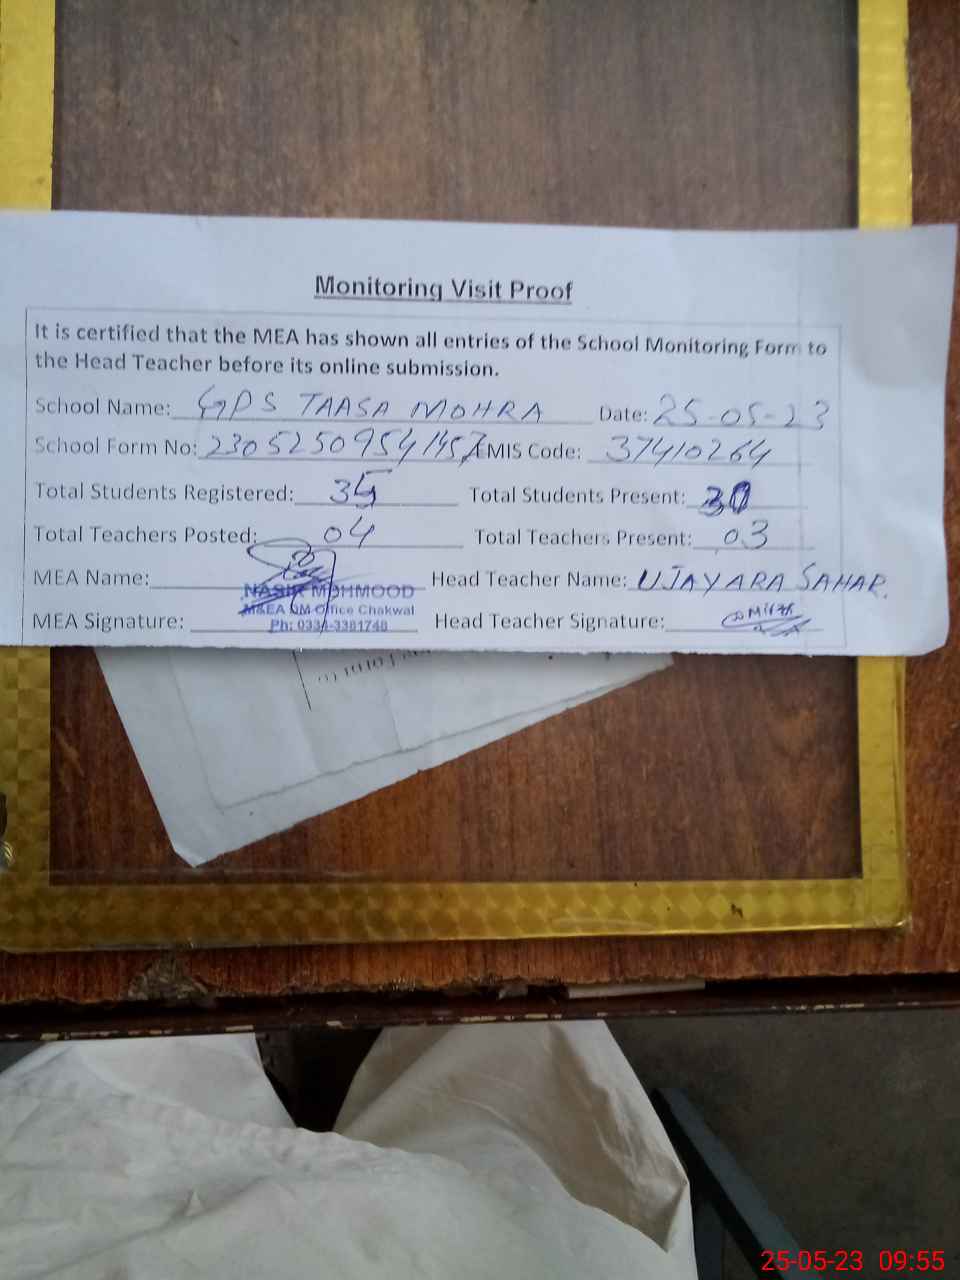 Monitoring Visit Proof
It is certified that the MEA has shown all entries of the School Monitoring Form to
the Head Teacher before its online submission.
School Name: GPS TAASA MOHRA Date: 25-05-23
School Form No: 2305250954145 EMIS Code: 37410264
Total Students Registered: 35 Total Students Present: 30
Total Teachers Posted: 04 Total Teachers Present: 03
MEA Name: Head Teacher Name: UJAYARA SAHAR.
NASIR MOHMOOD
M&EA DM Office Chakwal
MEA Signature: Ph: 0334-3381748 Head Teacher Signature:
25-05-23 09:55